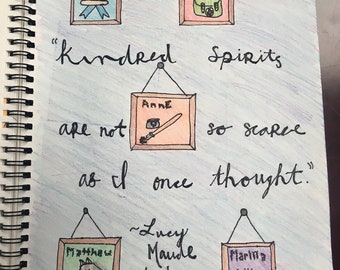 "Kindred Spirits
ANNE
are not so scarce
as I once thought."
~Lucy
Maude
Matthew
Marilla